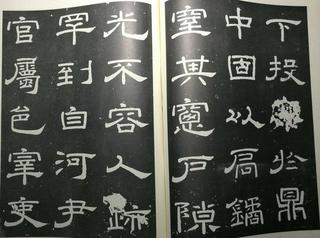 下投鼎
中固以扃鐍
窒其窻戶隙
光不容人跡
罕到自河尹
官屬邑宰吏